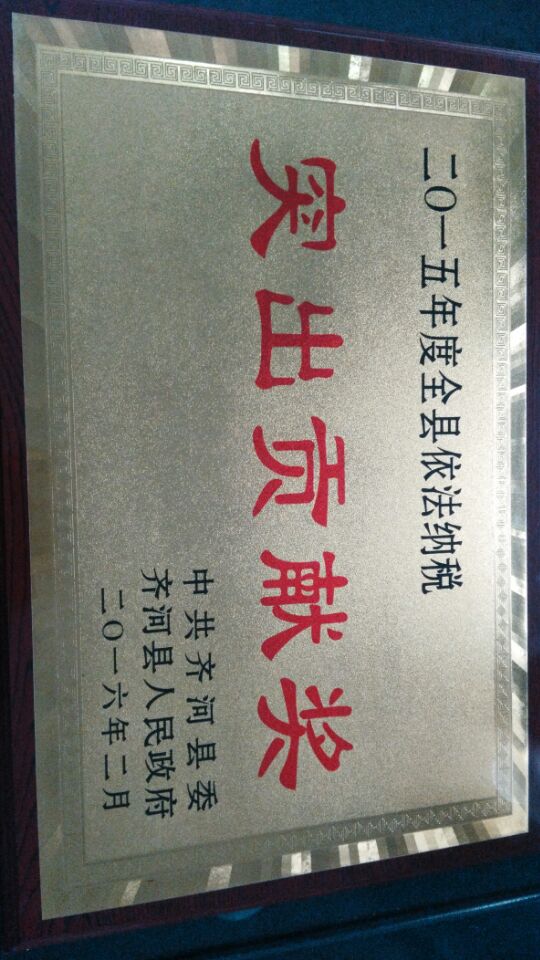 二〇一五年度全县依法纳税
突出贡献奖
中共齐河县委
齐河县人民政府
二〇一六年二月